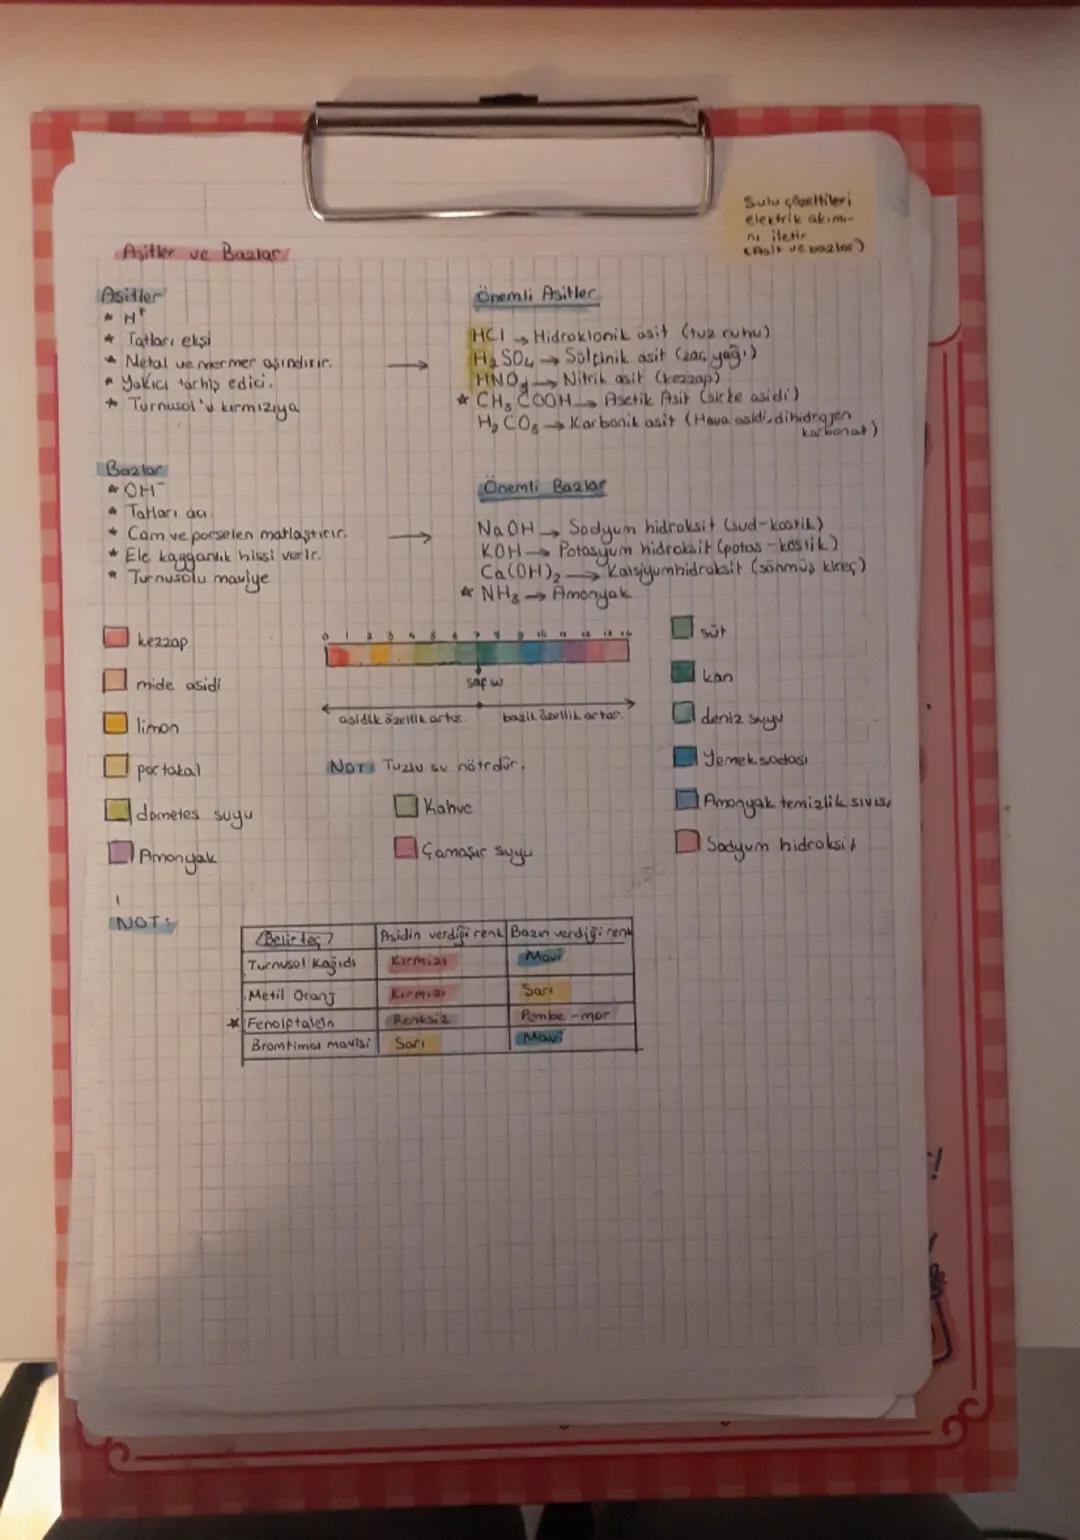 Sulu çözeltileri
elektrik akımı-
nı iletir
(Asit ve bazlar)
Asitler ve Bazlar
Asitler
* H⁺
* Tatları ekşi
* Metal ve mermer aşındırır.
* Yakıcı tarhiş edici.
* Turnusol'u kırmızıya
→
Önemli Asitler
HCl → Hidroklorik asit (tuz ruhu)
H₂SO₄ → Sülfirik asit (zaç yağı)
HNO₃ → Nitrik asit (kezzap)
* CH₃COOH → Asetik Asit (sirke asidi)
H₂CO₃ → Karbonik asit (Hava asidi, dihidrojen
karbonat)
Bazlar
* OH⁻
* Tatları acı
* Cam ve porselen matlaştırır.
* Ele kayganlık hissi verir.
* Turnusolu maviye
→
Önemli Bazlar
NaOH → Sodyum hidroksit (sud-kostik)
KOH → Potasyum hidroksit (potas-kostik)
Ca(OH)₂ → Kalsiyumhidroksit (sönmüş kireç)
* NH₃ → Amonyak
kezzap
mide asidi
limon
portakal
domates suyu
Amonyak
0 1 2 3 4 5 6 7 8 9 10 11 12 13 14
saf su
asidik özellik artar.
bazik özellik artar.
NOT: Tuzlu su nötrdür.
Kahve
Çamaşır suyu
süt
kan
deniz suyu
Yemek sodası
Amonyak temizlik sıvısı
Sodyum hidroksit
NOT:
Belirteç Asidin verdiği renk Bazın verdiği renk
Turnusol Kağıdı Kırmızı Mavi
Metil Oranj Kırmızı Sarı
* Fenolptalein Renksiz Pembe-mor
Bromtimol mavisi Sarı Mavi